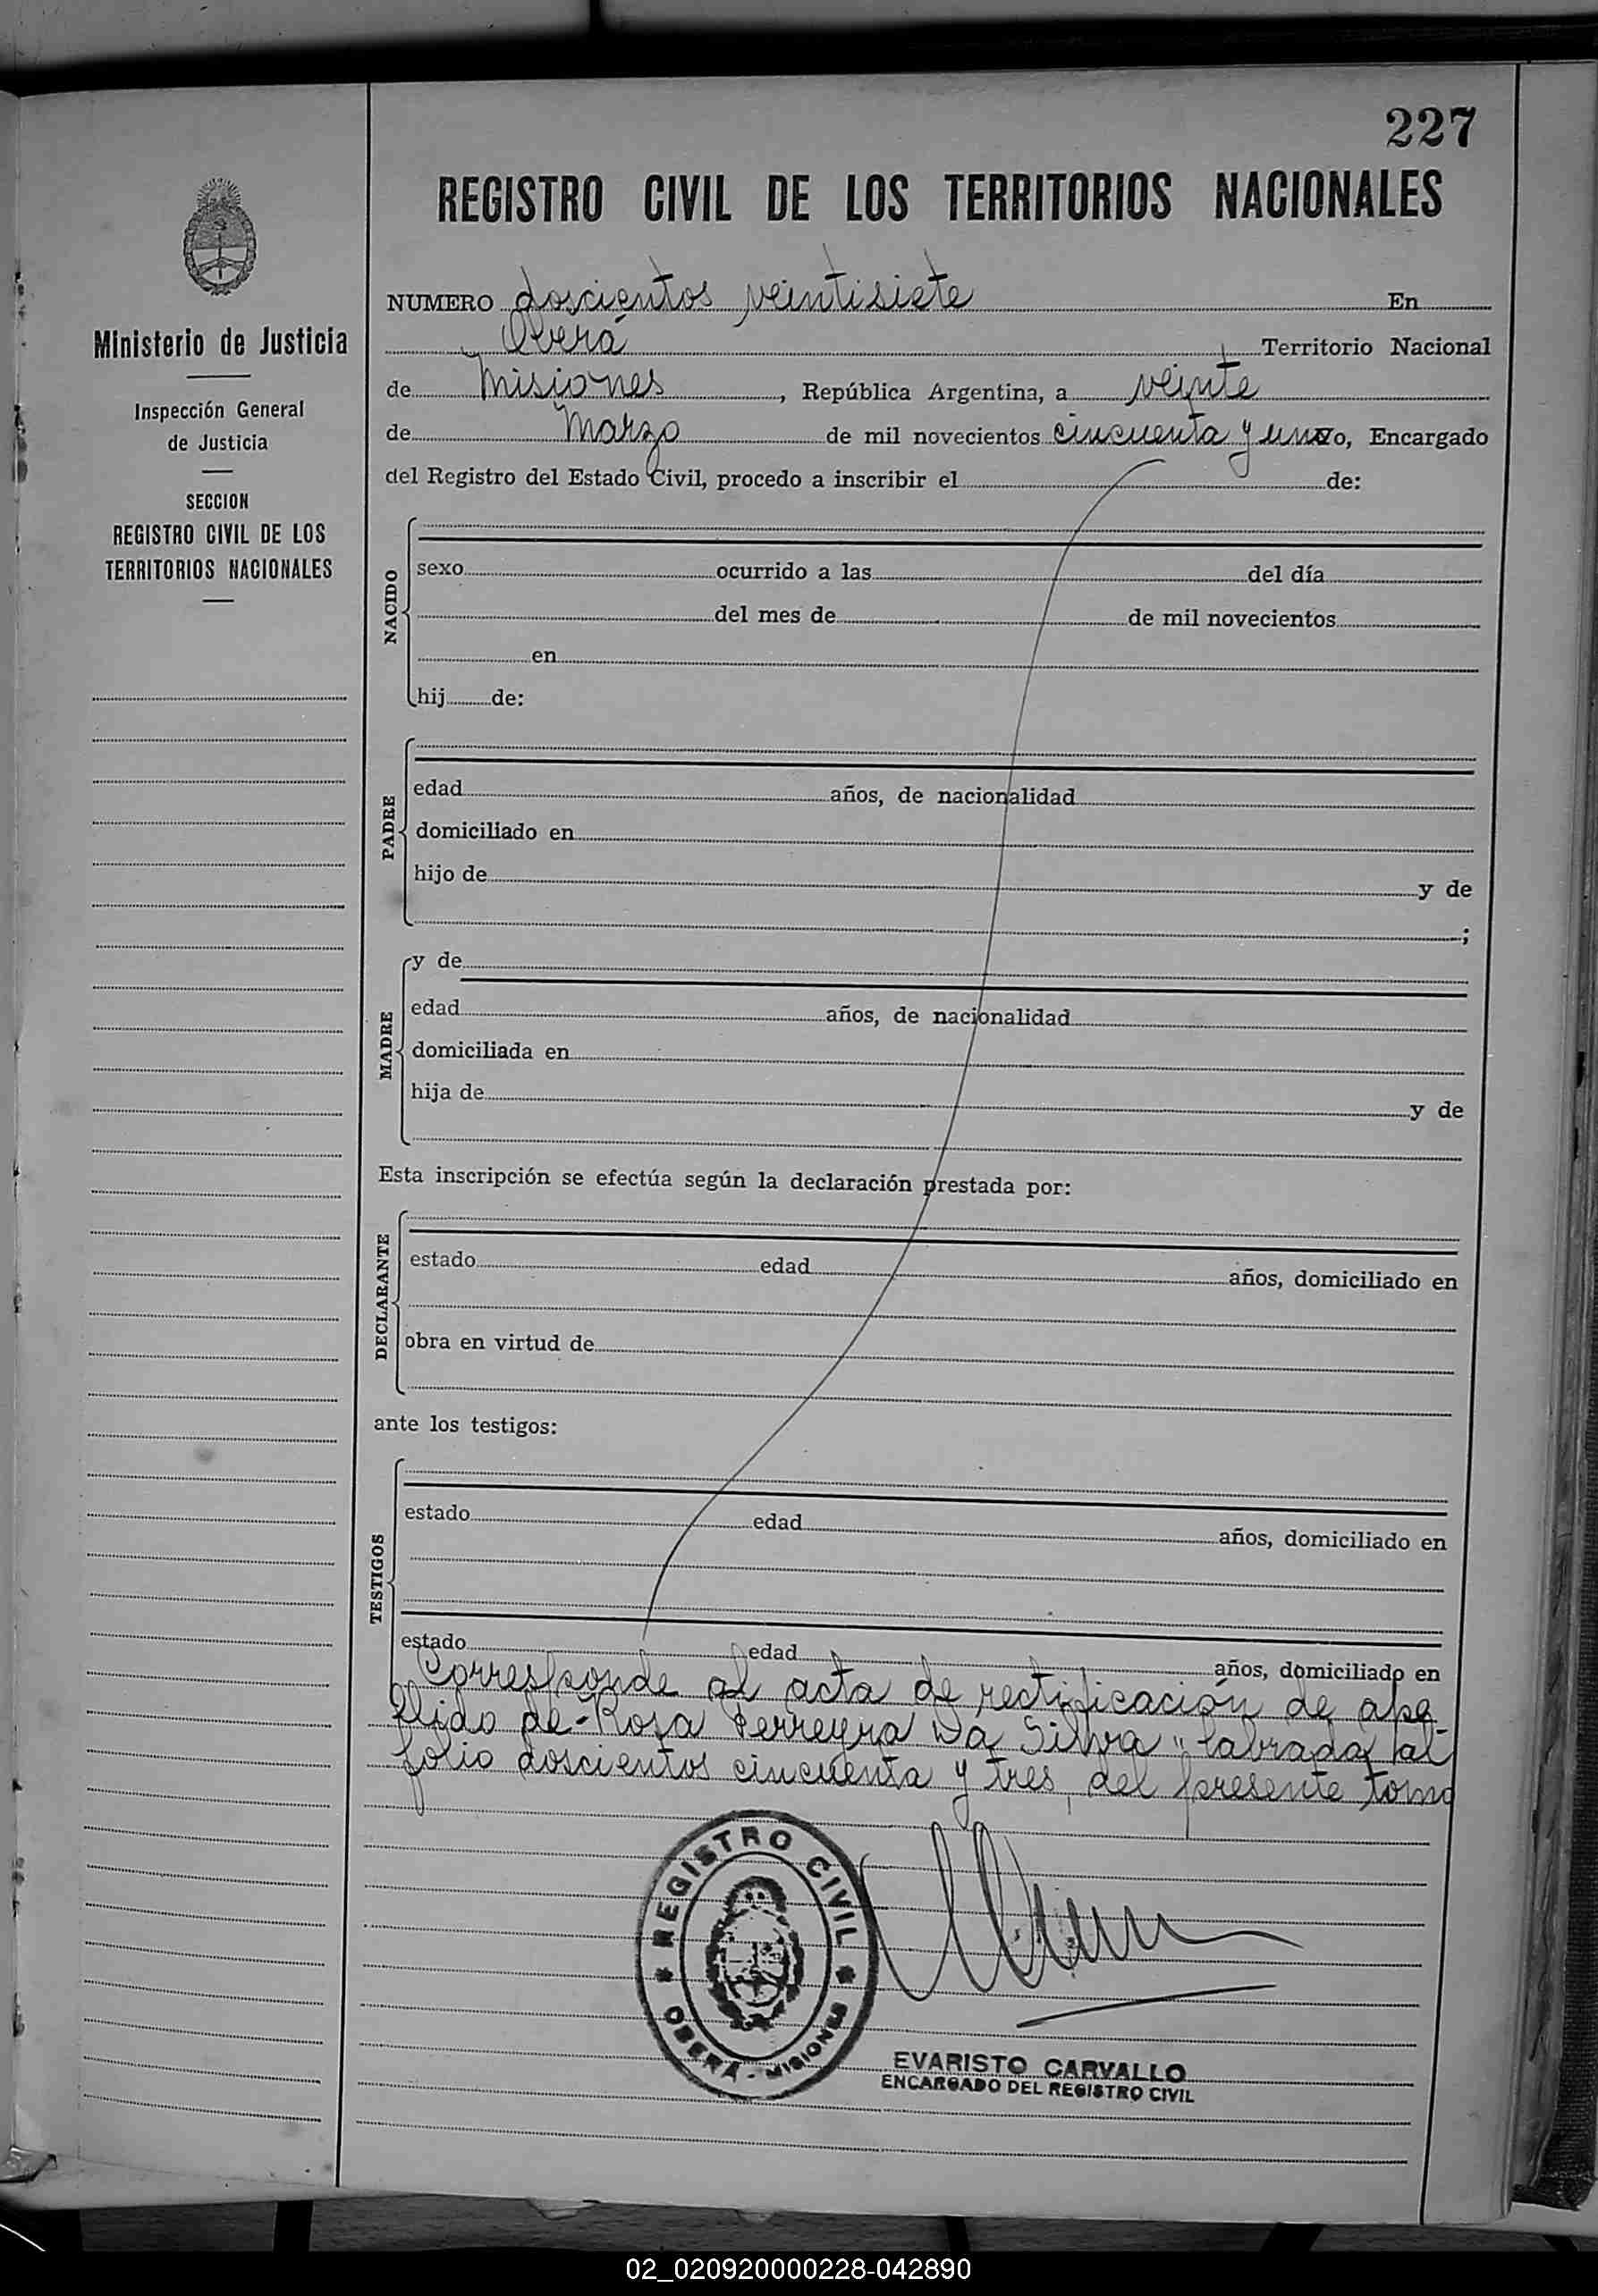 227
REGISTRO CIVIL DE LOS TERRITORIOS NACIONALES
Ministerio de Justicia
Inspección General
de Justicia
SECCION
REGISTRO CIVIL DE LOS
TERRITORIOS NACIONALES
NUMERO doscientos veintisiete En
Oberá Territorio Nacional
de Misiones, República Argentina, a veinte
de Marzo de mil novecientos cincuenta y uno, Encargado
del Registro del Estado Civil, procedo a inscribir el de:
NACIDO
sexo ocurrido a las del día
del mes de de mil novecientos
en
hij de:
PADRE
edad años, de nacionalidad
domiciliado en
hijo de y de
;
MADRE
y de
edad años, de nacionalidad
domiciliada en
hija de y de
Esta inscripción se efectúa según la declaración prestada por:
DECLARANTE
estado edad años, domiciliado en
obra en virtud de
ante los testigos:
TESTIGOS
estado edad años, domiciliado en
estado edad años, domiciliado en
Corresponde al acta de rectificación de ape-
llido de "Rosa Ferreyra Da Silva" labrada al
folio doscientos cincuenta y tres, del presente tomo
REGISTRO CIVIL
OBERA - MISIONES
EVARISTO CARVALLO
ENCARGADO DEL REGISTRO CIVIL
02_020920000228-042890